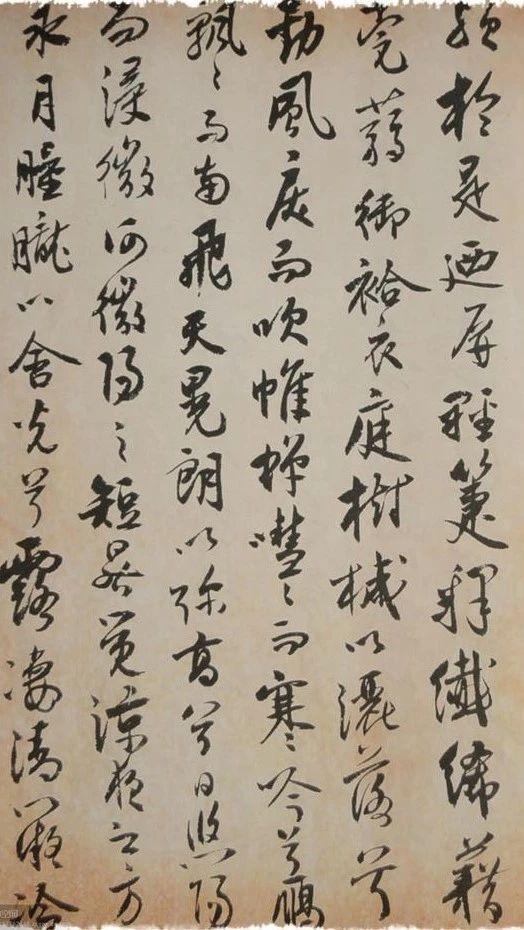 殞於是迺屏輕箑釋纖絺藉
莞蒻御袷衣庭樹槭以灑落兮
勁風戾而吹帷蟬嘒〻而寒吟兮鴈
飄〻而南飛天晃朗以弥高兮日悠陽
而浸微何微陽之短晷覺涼夜之方
永月朣朧以含光兮露凄清以凝冷